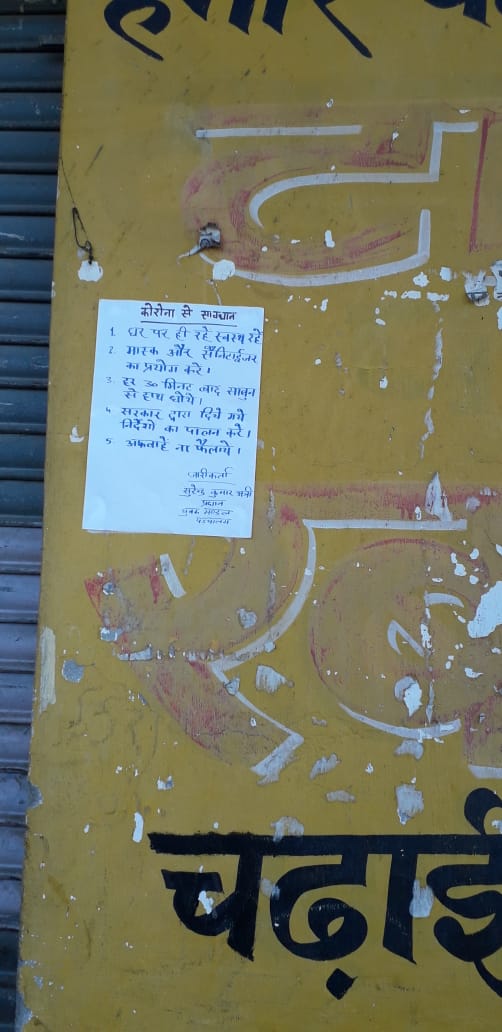 हमारे
कोरोना से सावधान
1. घर पर ही रहे स्वस्थ रहें
2. मास्क और सैनिटाईजर
का प्रयोग करे।
3. हर 30 मिनट बाद साबुन
से हाथ धोये।
4. सरकार द्वारा दिये गये
निर्देशो का पालन करे।
5. अफवाहें ना फैलाये।
जारीकर्ता
सुरेन्द्र कुमार
प्रधान
युवक मण्डल
चढ़ाई